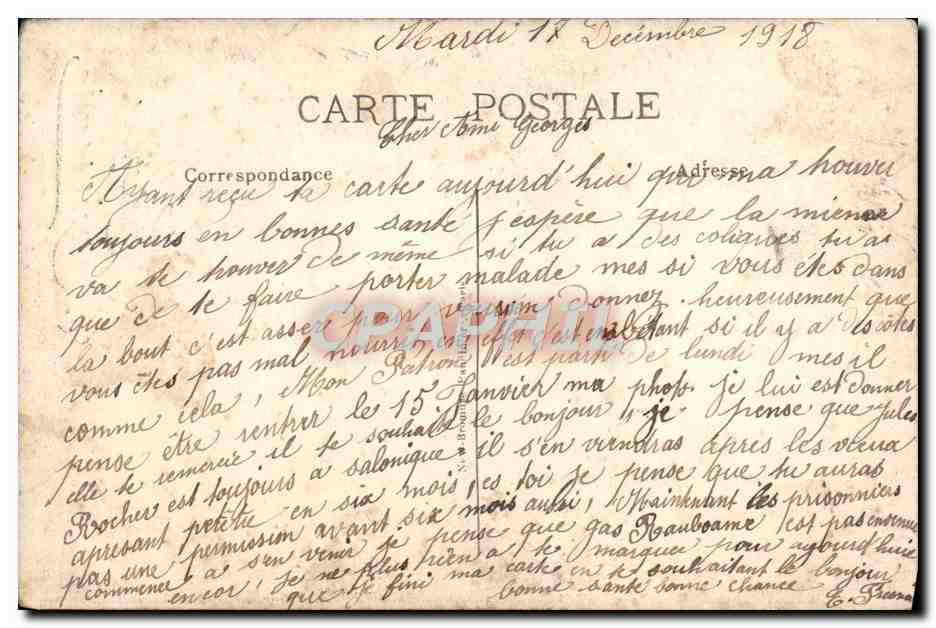 Mardi 17 Décembre 1918
CARTE POSTALE
Cher Ami Georges
Correspondance Adresse
Ayant reçu ta carte aujourd'hui qui ma trouver
toujours en bonnes santé j'espère que la mienne
va te trouver de même si tu a des coliques tu a
que de te faire porter malade mes si vous êtes dans
la bout c'est assere pour vous donnez heureusement que
vous êtes pas mal nourri c'est embêtant si il y a des côtes
comme cela, Mon Patron est parti de lundi mes il
pense être rentrer le 15 Janvier ma photo je lui est donner
elle te remercie il te souhait le bonjour, je pense que Jules
Rocher est toujours a salonique il s'en viendras apres les vieux
apresant petetre en six mois, es toi je pense que tu auras
pas une permission avant six mois aussi, Maintenant les prisonniers
commence a s'en venir je pense que gas est pas encore
encor, je ne plus rien a te marquer pour aujourd'huie
que je fini ma carte en te souhaitant le bonjour
bonne santé bonne chance E.
CPAPHIL